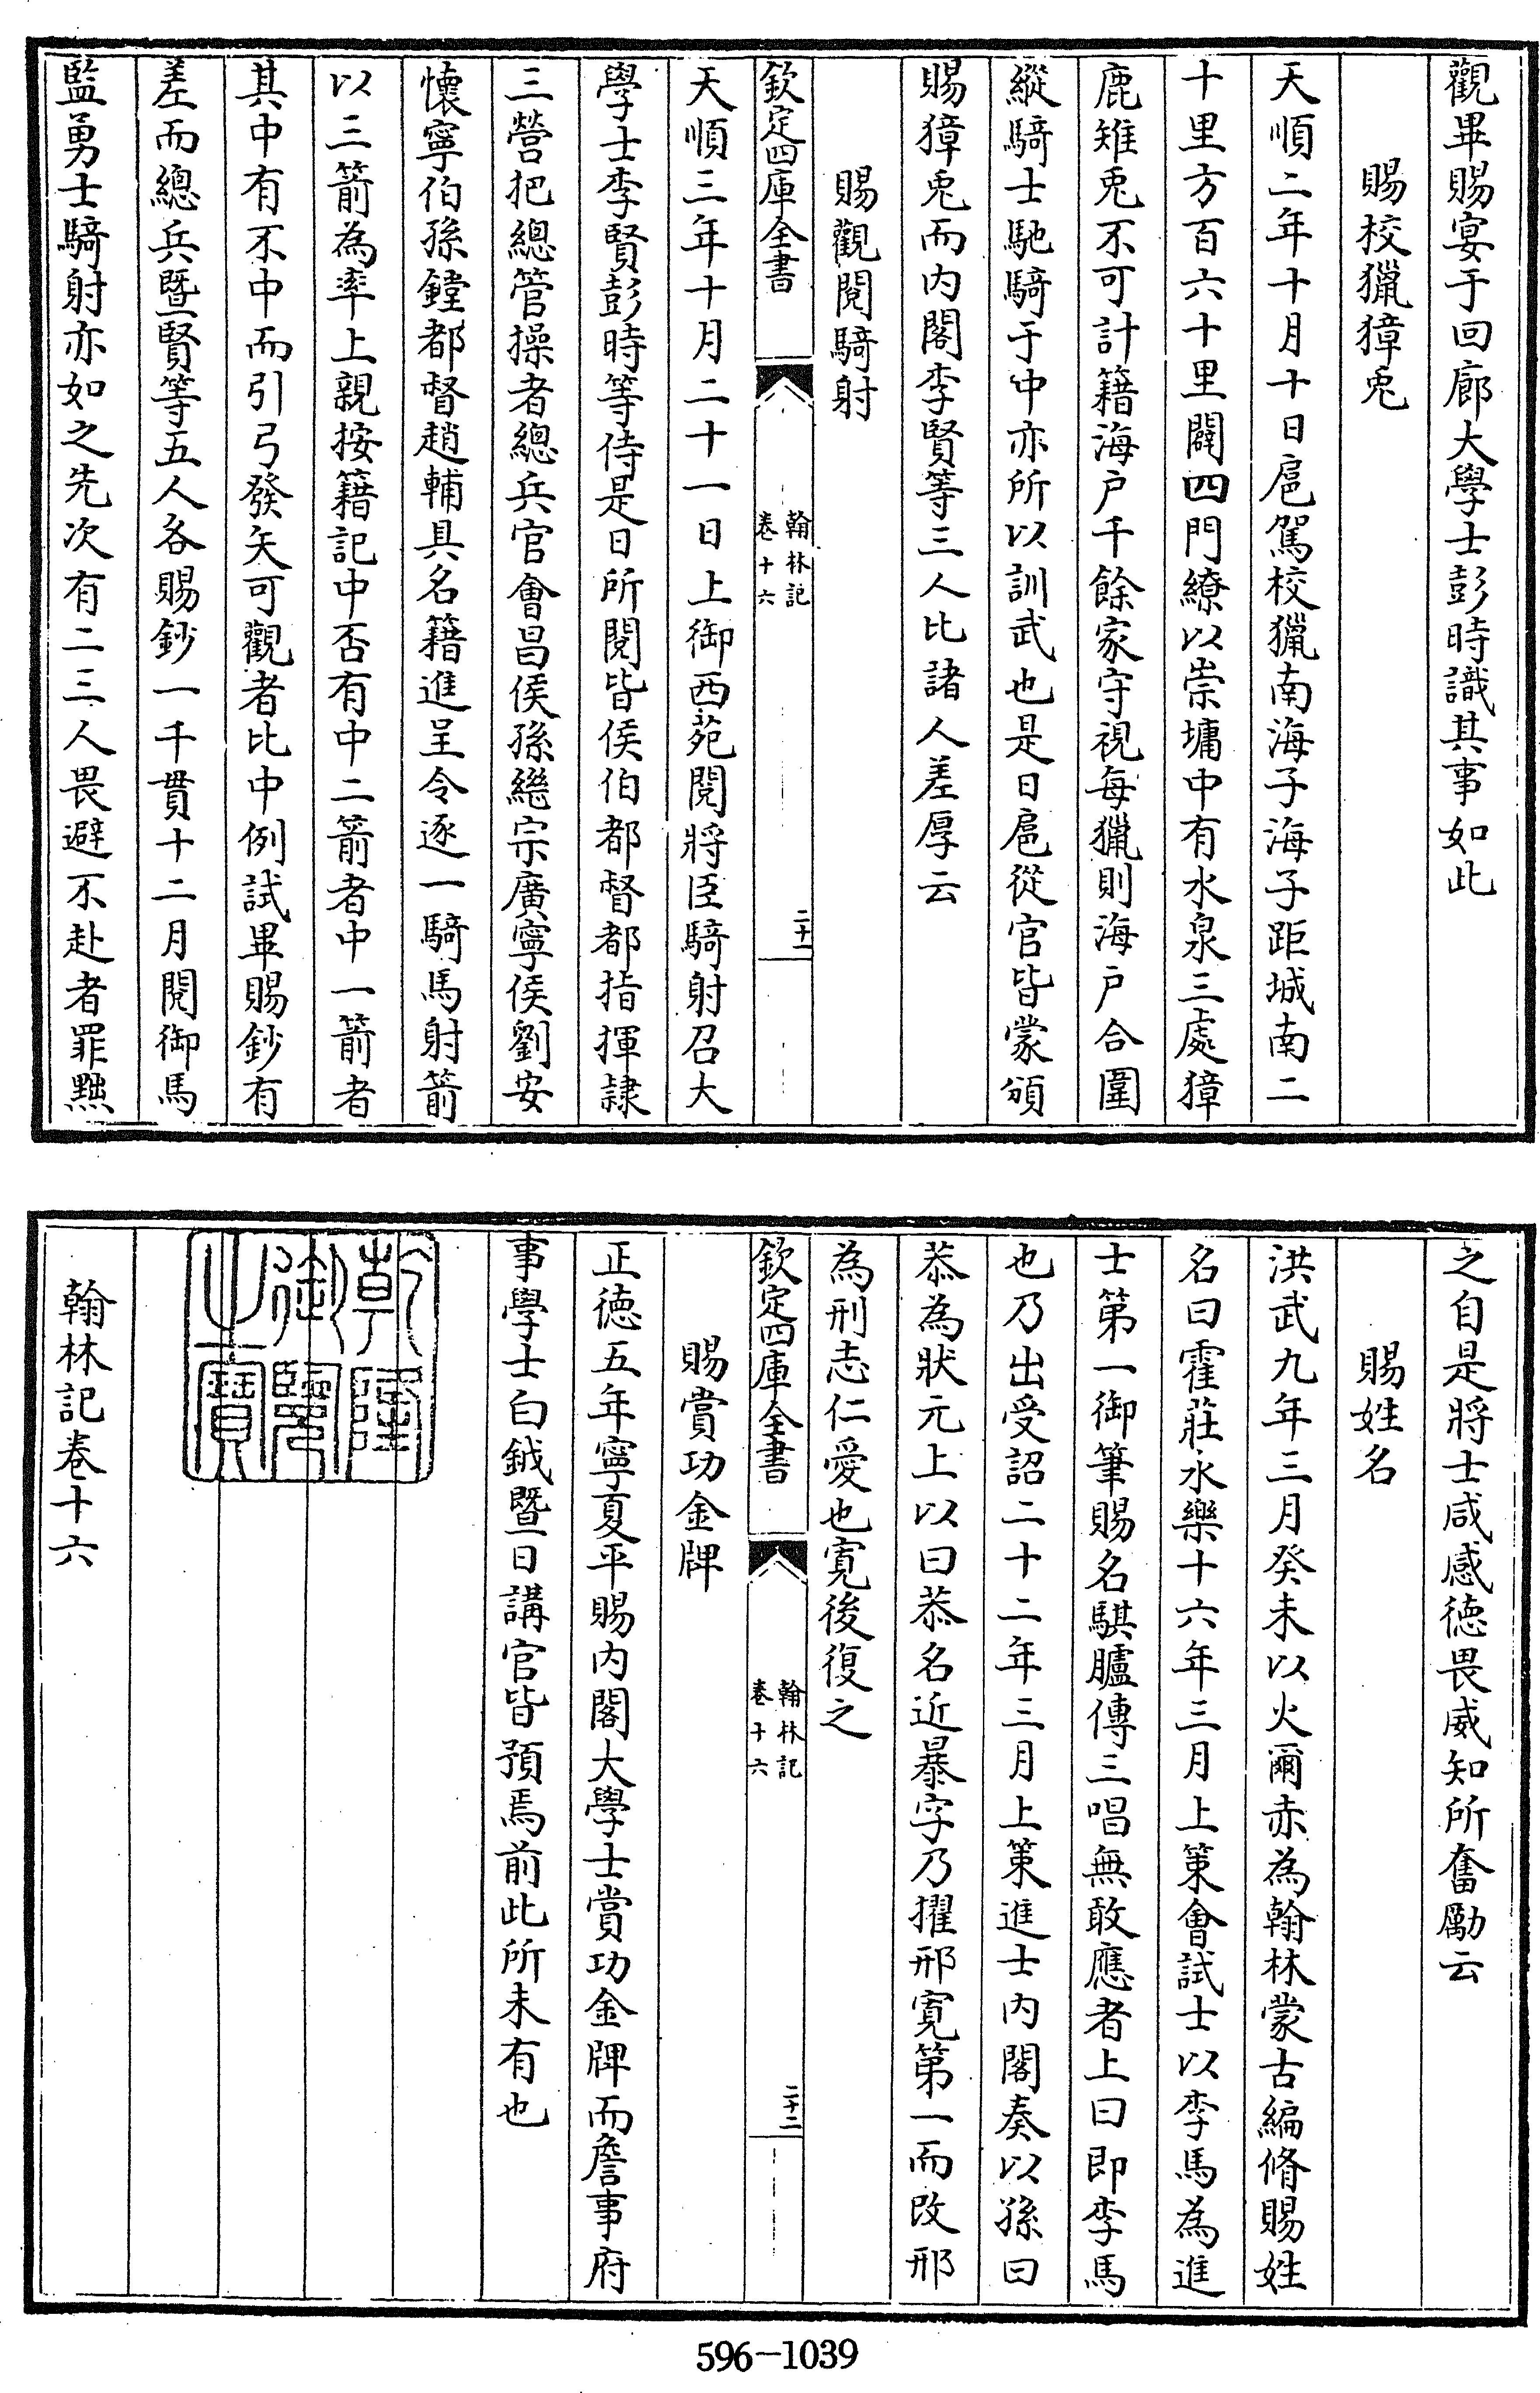 觀畢賜宴于回廊大學士彭時識其事如此
賜校獵獐兎
天順二年十月十日扈駕校獵南海子海子距城南二
十里方百六十里闢四門繚以崇墉中有水泉三處獐
鹿雉兎不可計籍海户千餘家守視每獵則海户合圍
縱騎士馳騎于中亦所以訓武也是日扈從官皆蒙頒
賜獐兎而内閣李賢等三人比諸人差厚云
賜觀閱騎射
欽定四庫全書
翰林記
卷十六
二十一
天順三年十月二十一日上御西苑閱將臣騎射召大
學士李賢彭時等侍是日所閱皆侯伯都督都指揮隷
三營把總管操者總兵官會昌侯孫繼宗廣寧侯劉安
懐寧伯孫鏜都督趙輔具名籍進呈令逐一騎馬射箭
以三箭為率上親按籍記中否有中二箭者中一箭者
其中有不中而引弓發矢可觀者比中例試畢賜鈔有
差而總兵暨賢等五人各賜鈔一千貫十二月閱御馬
監勇士騎射亦如之先次有二三人畏避不赴者罪黜
之自是將士咸感徳畏威知所奮勵云
賜姓名
洪武九年三月癸未以火爾赤為翰林蒙古編脩賜姓
名曰霍莊永樂十六年三月上策會試士以李馬為進
士第一御筆賜名騏臚傳三唱無敢應者上曰即李馬
也乃出受詔二十二年三月上策進士内閣奏以孫曰
恭為狀元上以曰恭名近暴字乃擢邢寛第一而改邢
為刑志仁愛也寛後復之
欽定四庫全書
翰林記
卷十六
二十二
賜賞功金牌
正徳五年寧夏平賜内閣大學士賞功金牌而詹事府
事學士白鉞暨日講官皆預焉前此所未有也
乾隆御覽之寶
翰林記卷十六
596-1039